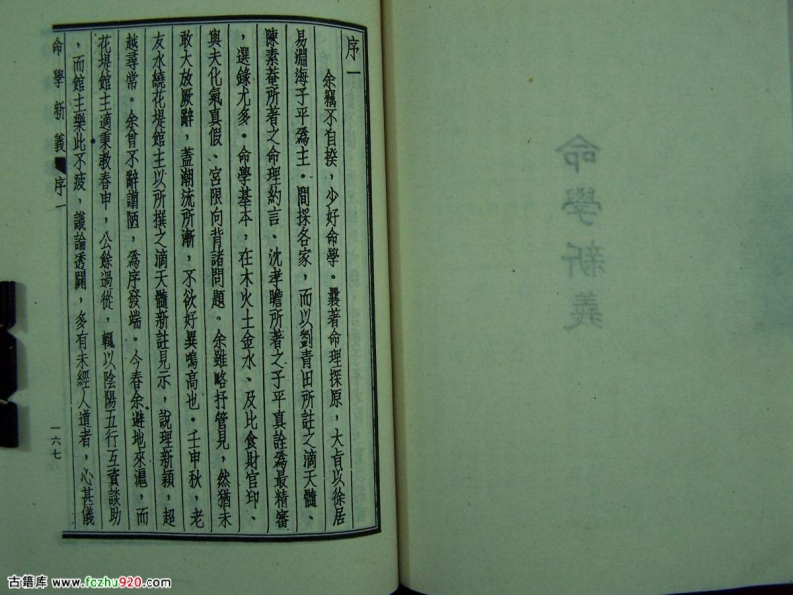 命學新義
序一
余竊不自揆，少好命學。曩著命理探原，大旨以徐居
易淵海子平爲主。間採各家，而以劉青田所註之滴天髓、
陳素菴所著之命理約言、沈孝瞻所著之子平真詮爲最精審
，選錄尤多。命學基本，在木火土金水、及比食財官印、
與夫化氣真假、宮限向背諸問題。余雖略抒管見，然猶未
敢大放厥辭，蓋潮流所漸，不欲好異鳴高也。壬申秋，老
友水繞花堤館主以所撰之滴天髓新註見示，說理新穎，超
越尋常。余曾不辭謭陋，爲序發端。今春余避地來滬，而
花堤館主適秉教春申，公餘過從，輒以陰陽五行互資談助
，而館主樂此不疲，議論透闢，多有未經人道者，心甚儀
命學新義 序一
一六七
古籍库 www.fozhu920.com